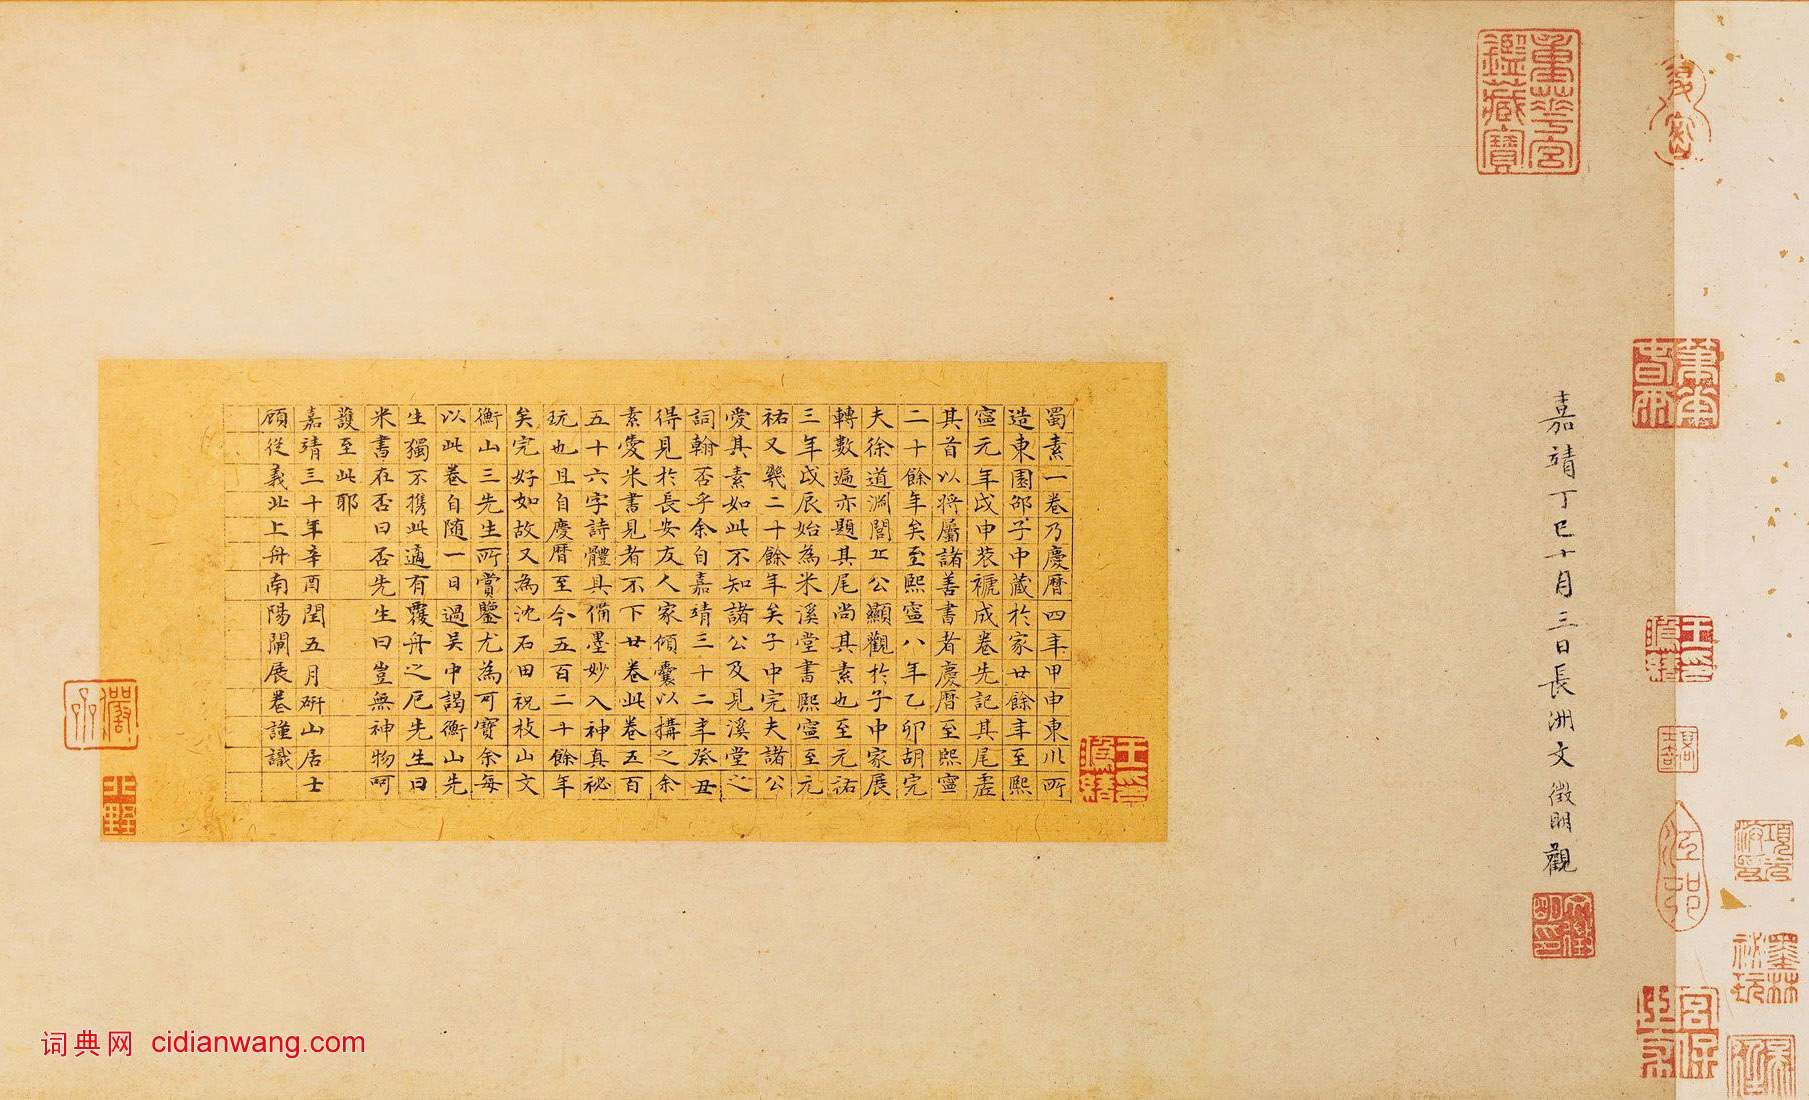 重華宮鑑藏寶
嘉靖丁巳十月三日長洲文徵明觀
王鴻緒印
蜀素一卷乃慶暦四年甲申東川所
造東園邵子中藏於家廿餘年至熙
寧元年戊申裝褫成卷先記其尾虛
其首以將屬諸善書者慶暦至熙寧
二十餘年矣至熙寧八年乙卯胡完
夫徐道淵閭丘公顯觀於子中家展
轉數遍亦題其尾尚其素也至元祐
三年戊辰始為米溪堂書熙寧至元
祐又幾二十餘年矣子中完夫諸公
愛其素如此不知諸公及見溪堂之
詞翰否乎余自嘉靖三十二年癸丑
得見於長安友人家傾囊以搆之余
素愛米書見者不下廿卷此卷五百
五十六字詩體具備墨妙入神真祕
玩也且自慶暦至今五百二十餘年
矣完好如故又為沈石田祝枝山文
衡山三先生所賞鑒尤為可寶余每
以此卷自隨一日過吳中謁衡山先
生獨不携此適有覆舟之厄先生曰
米書在否曰否先生曰豈無神物呵
護至此耶
嘉靖三十年辛酉閏五月硏山居士
顧從義北上舟南陽閘展卷謹識
北野
词典网 cidianwang.com